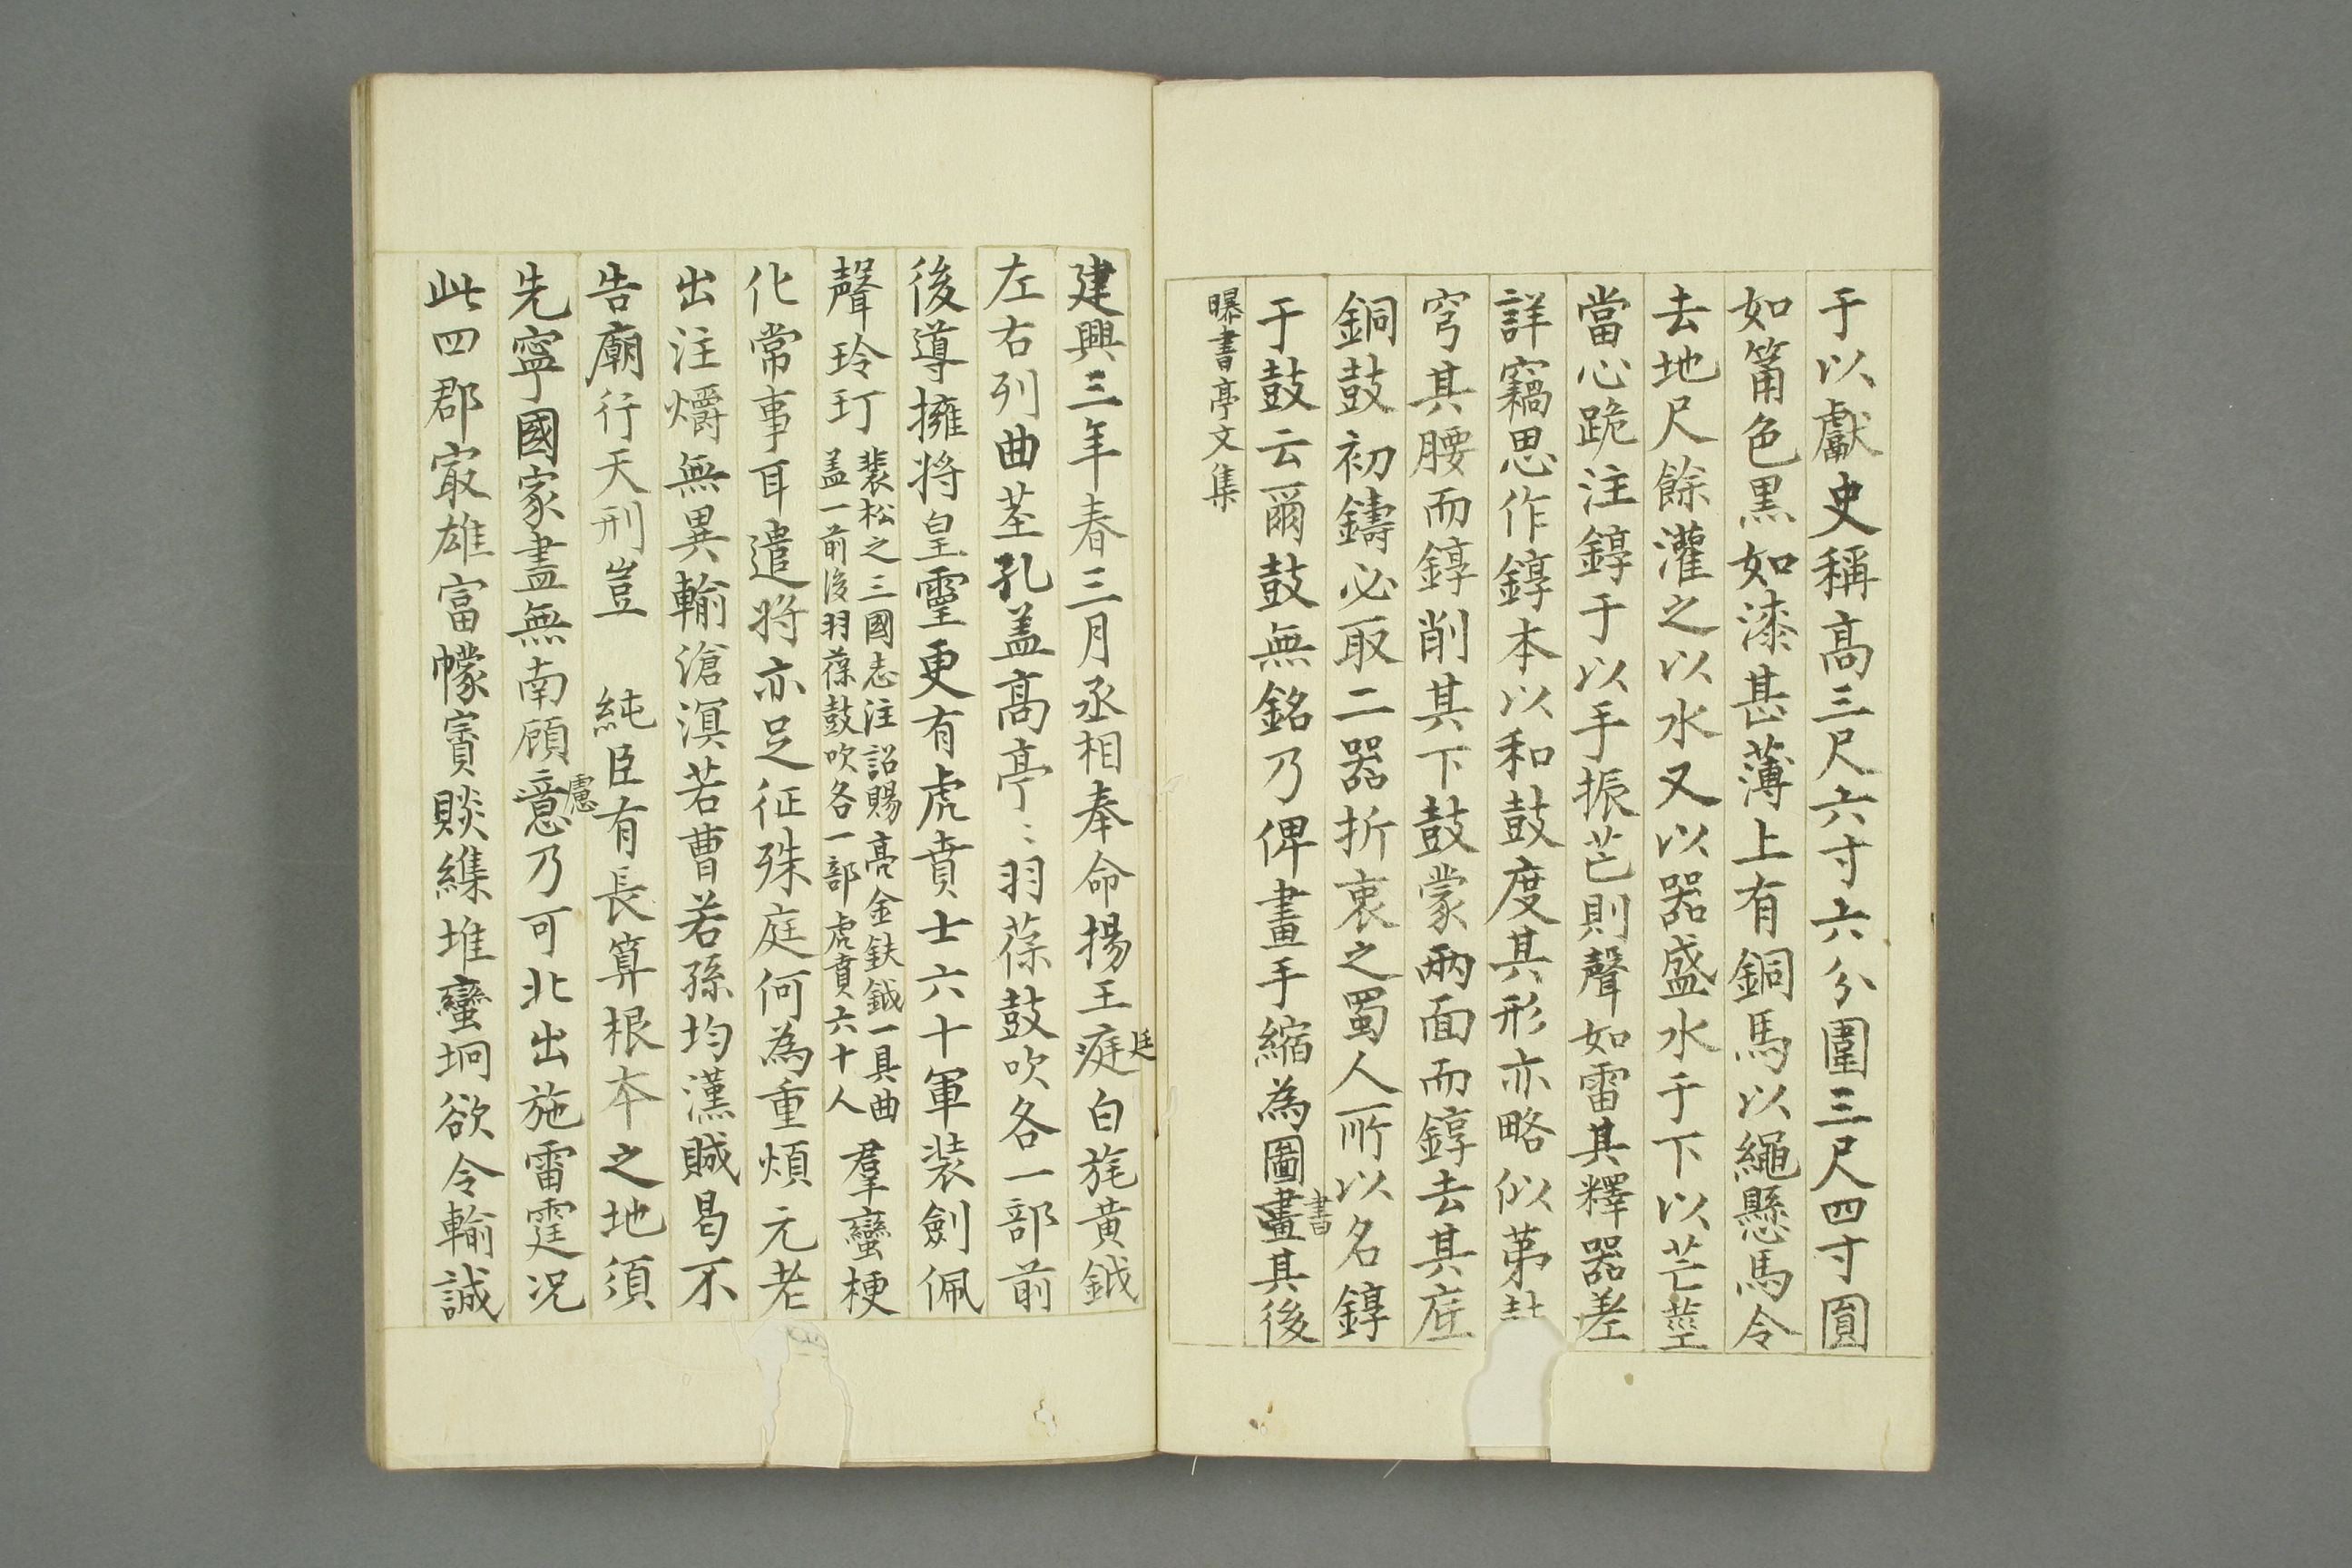 于以獻史稱高三尺六寸六分圍三尺四寸圓
如筩色黒如漆甚薄上有銅馬以繩懸馬令
去地尺餘灌之以水又以器盛水于下以芒莖
當心跪注錞于以手振芒則聲如雷其釋器差
詳竊思作錞本以和鼓度其形亦略似第
穹其腰而錞削其下鼓蒙兩面而錞去其底
銅鼓初鑄必取二器折衷之蜀人所以名錞
于鼓云爾鼓無銘乃俾畫手縮為圖畫其後
書
曝書亭文集
建興三年春三月丞相奉命揚王庭白旄黃鉞
廷
左右列曲茎孔盖高亭〻羽葆鼓吹各一部前
後導擁将皇靈更有虎賁士六十軍装劍佩
聲玲玎
裴松之三國志注詔賜亮金鈇鉞一具曲
盖一前後羽葆鼓吹各一部虎賁六十人
羣蠻梗
化常事耳遣将亦足征殊庭何為重煩元老
出注爝無異輸滄溟若曹若孫均漢賊曷不
告廟行天刑豈　純臣有長算根本之地須
先寧國家盡無南顧意乃可北出施雷霆况
慮
此四郡㝡雄富幏賨賧繏堆蠻坰欲令輸誠